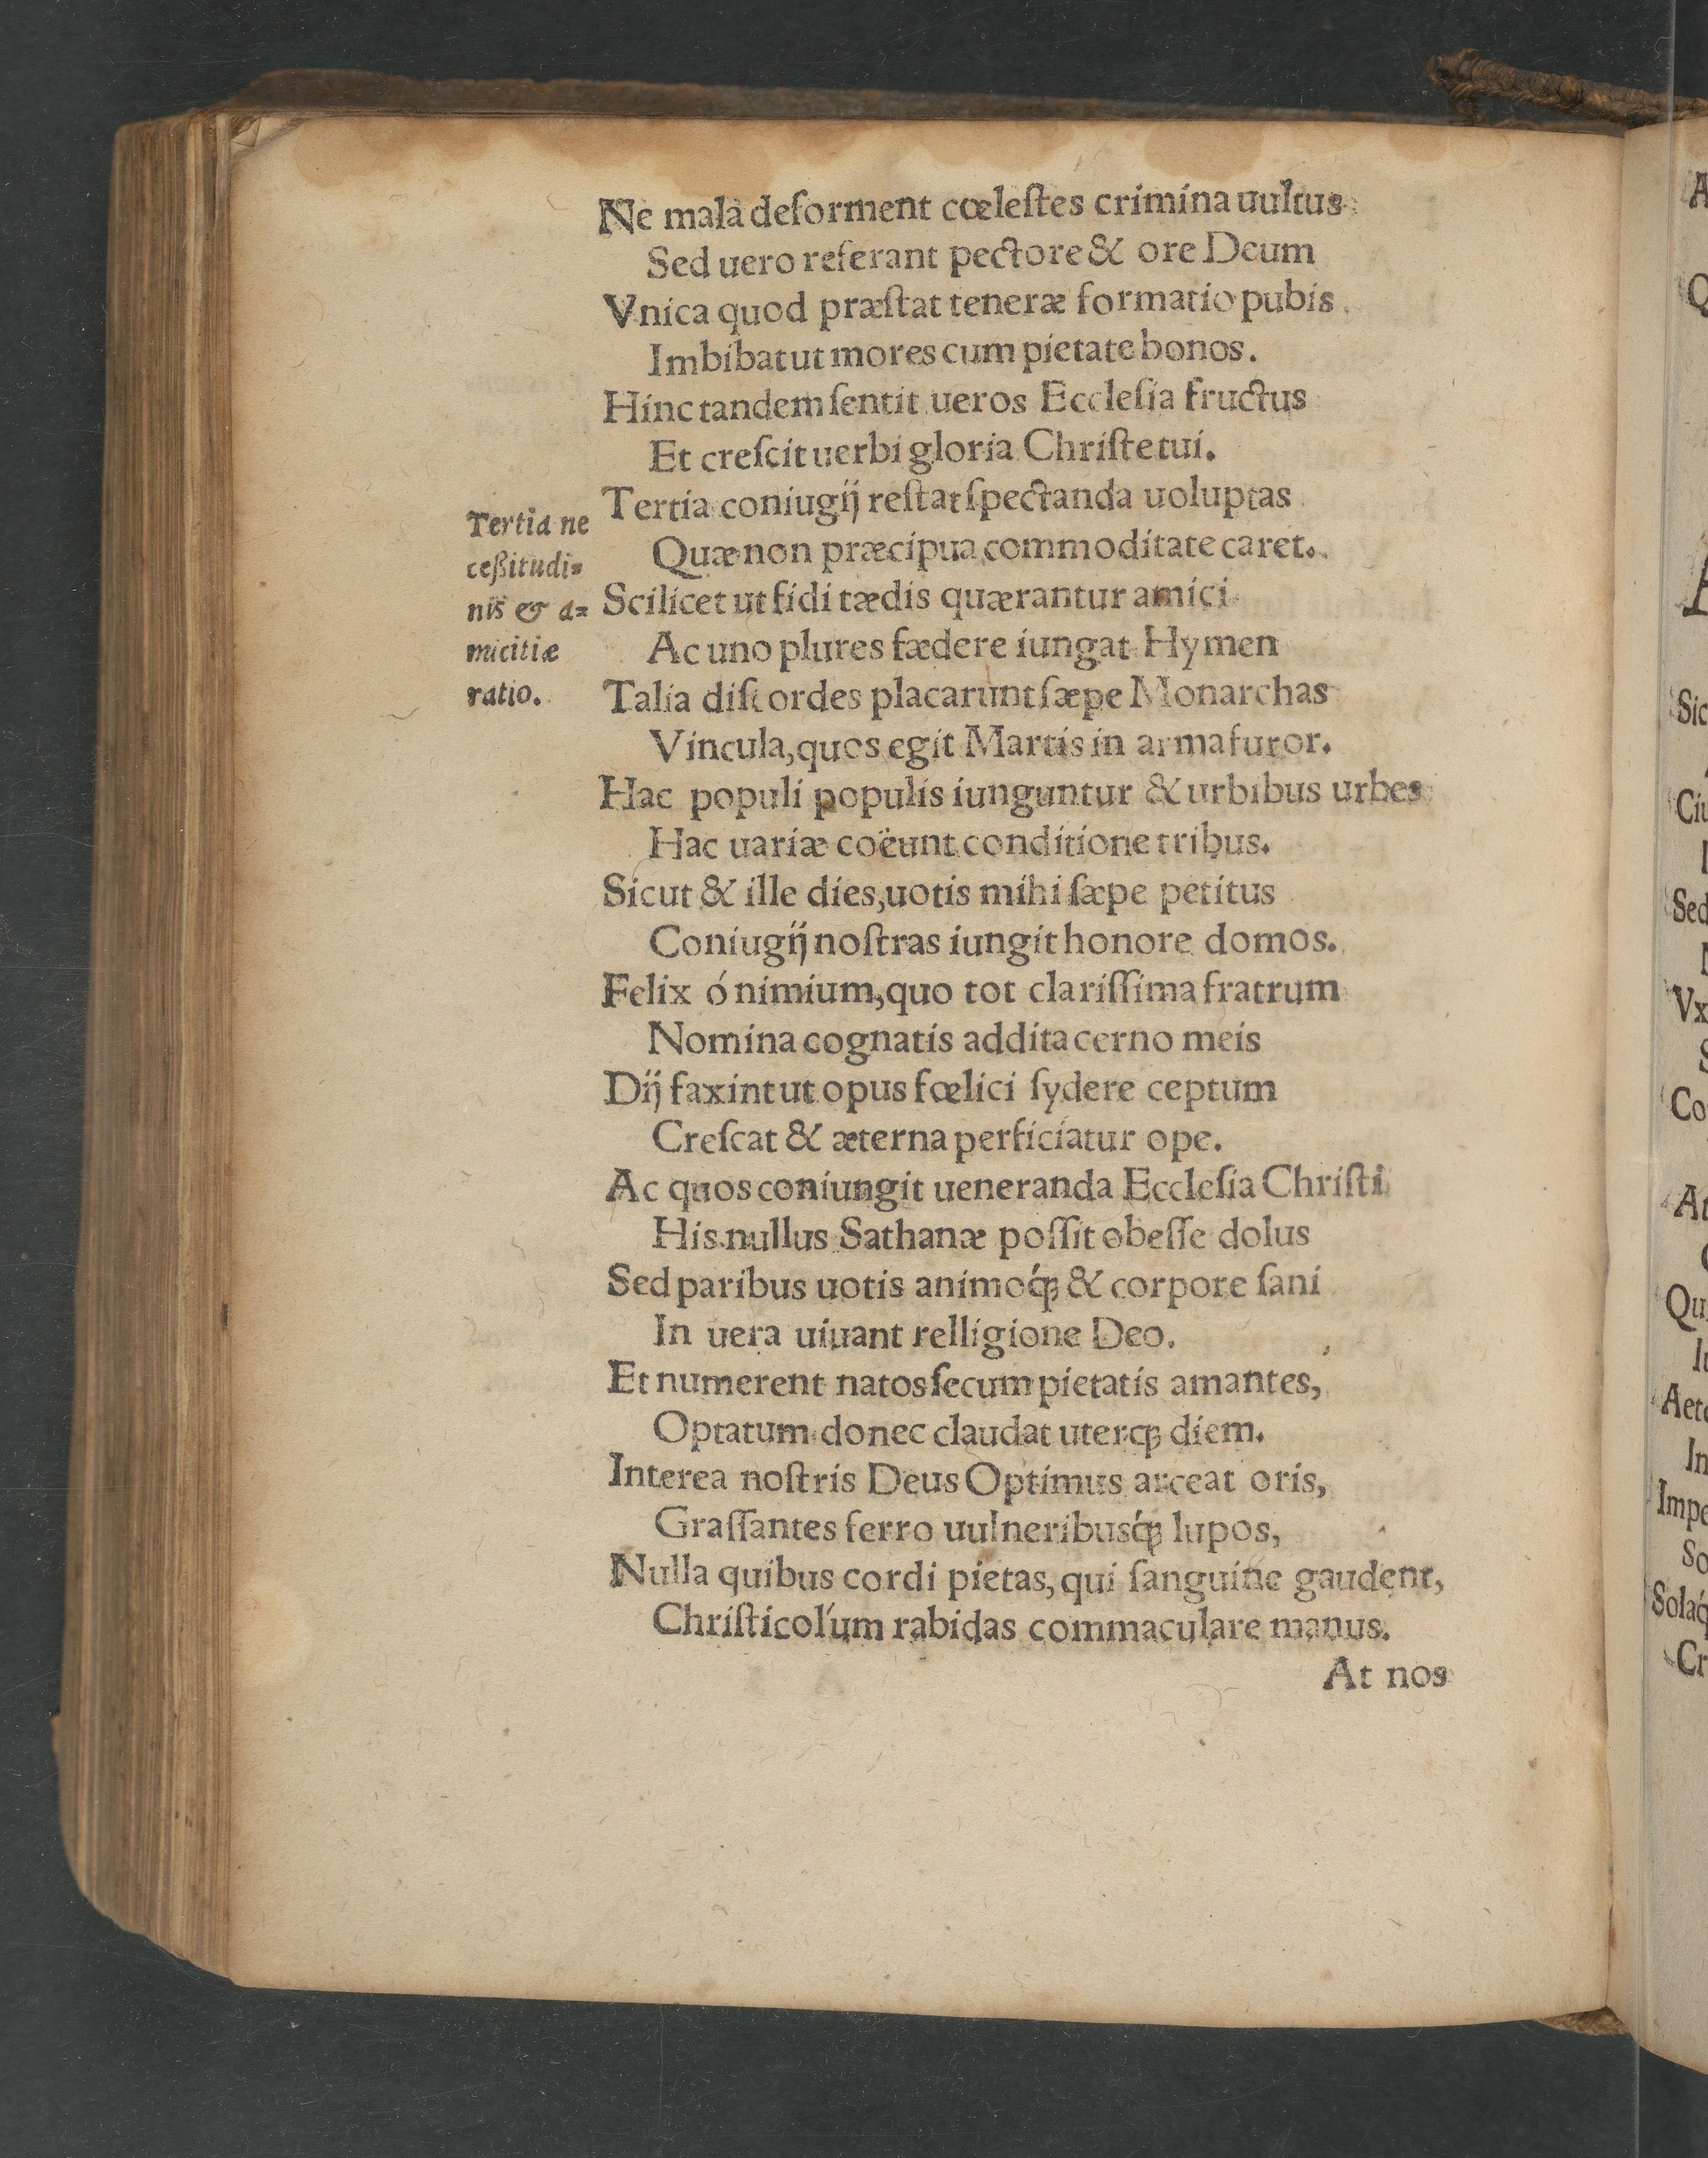 Ne mala deforment cœleſtes crimina uultus
Sed uero referant pectore & ore Deum
Vnica quod præſtat teneræ formatio pubis
Imbibat ut mores cum pietate bonos.
Hinc tandem ſentit ueros Eccleſia fructus
Et creſcit uerbi gloria Chriſte tui.
Tertia coniugij reſtat ſpectanda uoluptas
Quæ non præcipua commoditate caret.
Scilicet ut fidi tædis quærantur amici
Ac uno plures fædere iungat Hymen
Talia diſcordes placarunt ſæpe Monarchas
Vincula, quos egit Martis in arma furor.
Hac populi populis iunguntur & urbibus urbes
Hac uariæ coëunt conditione tribus.
Sicut & ille dies, uotis mihi ſæpe petitus
Coniugij noſtras iungit honore domos.
Felix ó nimium, quo tot clariſſima fratrum
Nomina cognatis addita cerno meis
Dij faxint ut opus fœlici ſydere ceptum
Creſcat & æterna perficiatur ope.
Ac quos coniungit ueneranda Eccleſia Chriſti
His nullus Sathanæ poſſit obeſſe dolus
Sed paribus uotis animoq́ꝫ & corpore ſani
In uera uiuant relligione Deo.
Et numerent natos ſecum pietatis amantes,
Optatum donec claudat uterqꝫ diem.
Interea noſtris Deus Optimus arceat oris,
Graſſantes ferro uulneribusq́ꝫ lupos,
Nulla quibus cordi pietas, qui ſanguine gaudent,
Chriſticolúm rabidas commaculare manus.
At nos
Tertia ne
ceßitudi⸗
nis & a⸗
micitiæ
ratio.
A
Q
A
Sic
Ciu
I
Sed
Vx
S
Co
At
Qu
Iu
Aete
In
Impe
So
Solaq́
Cr